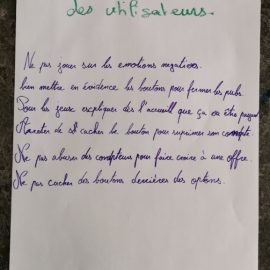 des utilisateurs.
Ne pas jouer sur les emotions negatives.
bien mettre en évidence les boutons pour fermer les pubs.
Pour les jeux expliquer dès l'accueil que ça va être payant
Arreter de cacher le bouton pour suprimer son compte.
Ne pas abuser des compteurs pour faire croire à une offre.
Ne pas cacher des boutons derrières des options.